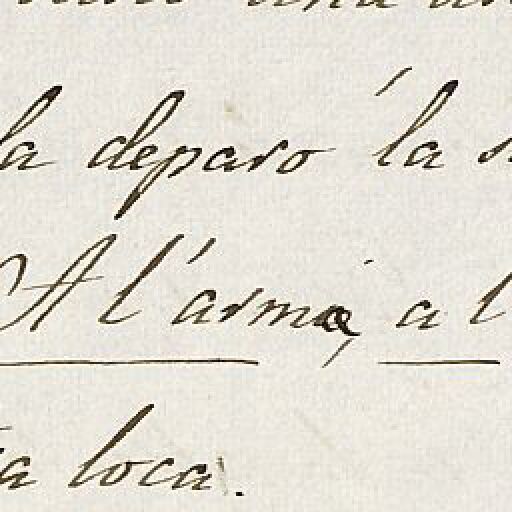 la deparo la
A l'arma, a l
a loca.